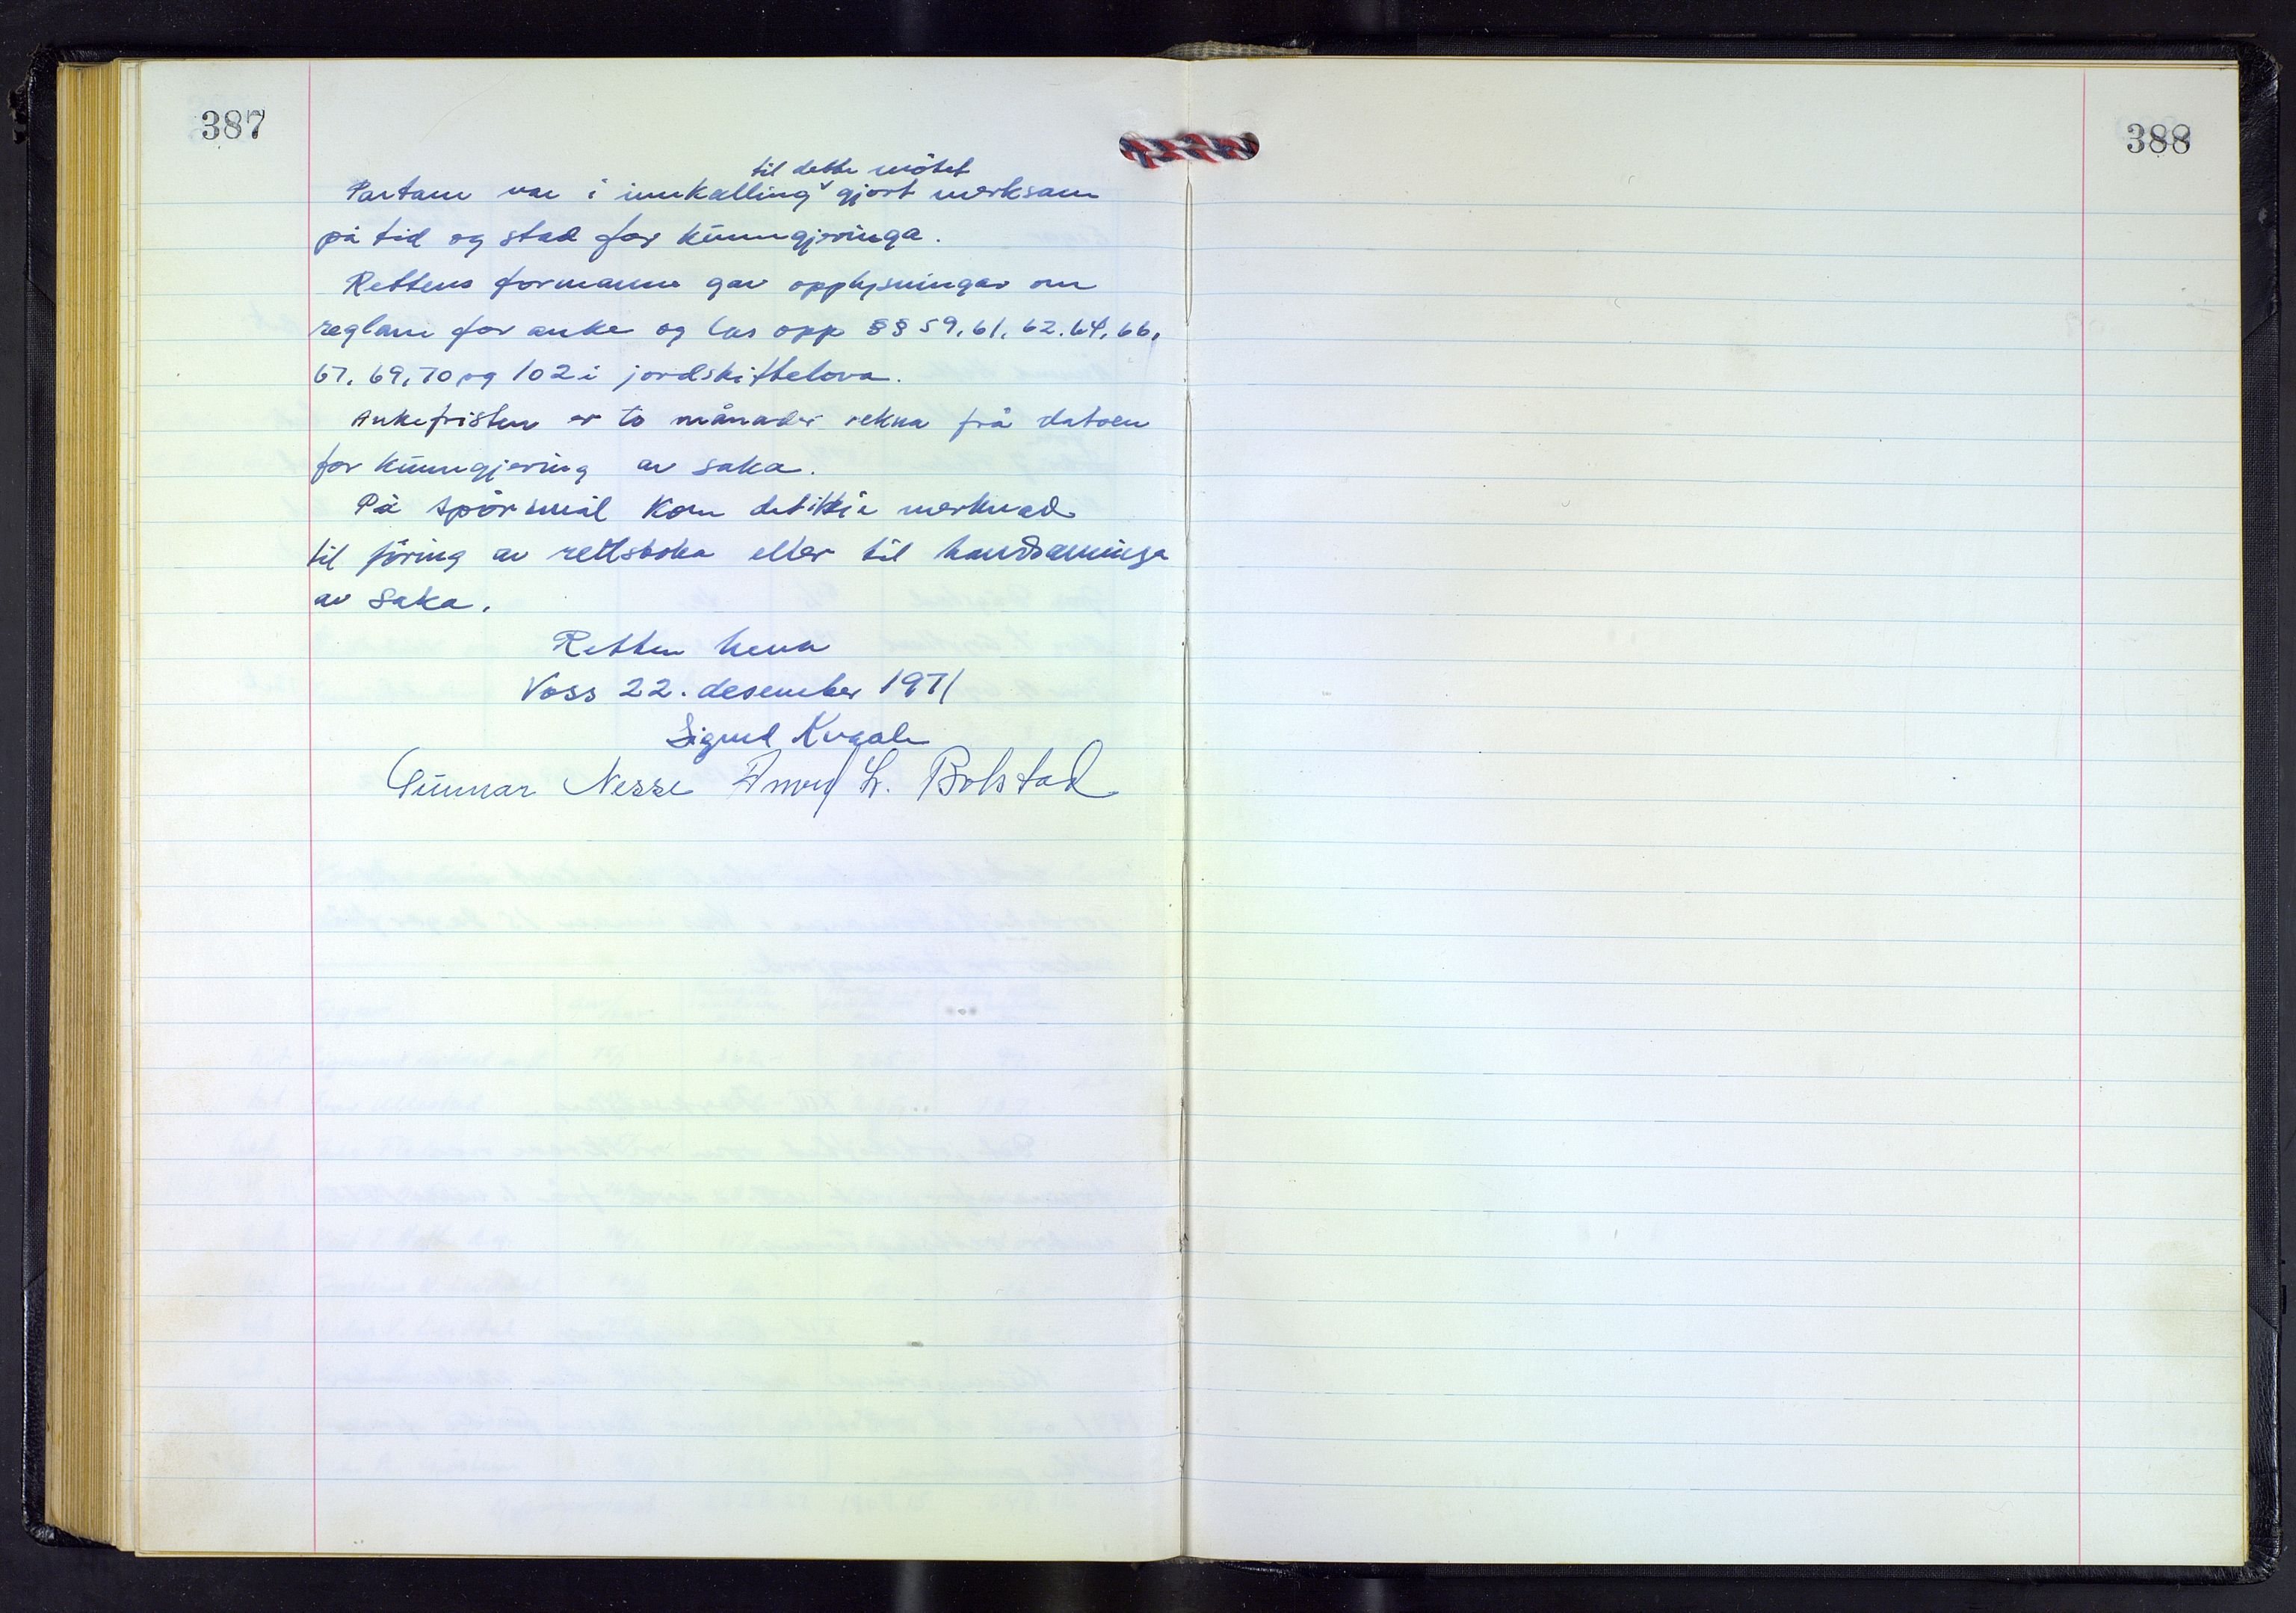 387
til dette mötet
Partane var i innkalling ˅ gjort merksam
på tid og stad for kunngjeringa.
Rettens formann gav opplysningar om
reglane for anke og las opp §§ 59, 61, 62. 64, 66,
67, 69, 70 og 102 i jordskiftelova.
Ankefristen er to månader rekna frå datoen
for kunngjering av saka.
På spörsmål kom det ikkje merknad
til föring av rettsboka eller til handsaminga
av saka.
Retten heva
Voss 22. desember 1971
Sigurd Kvaale
Gunnar Nesse L. Bolstad
388